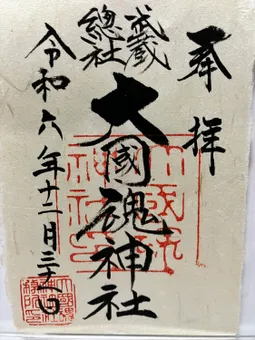 奉拝
武蔵
總社
大國魂神社
令和六年十二月三十日